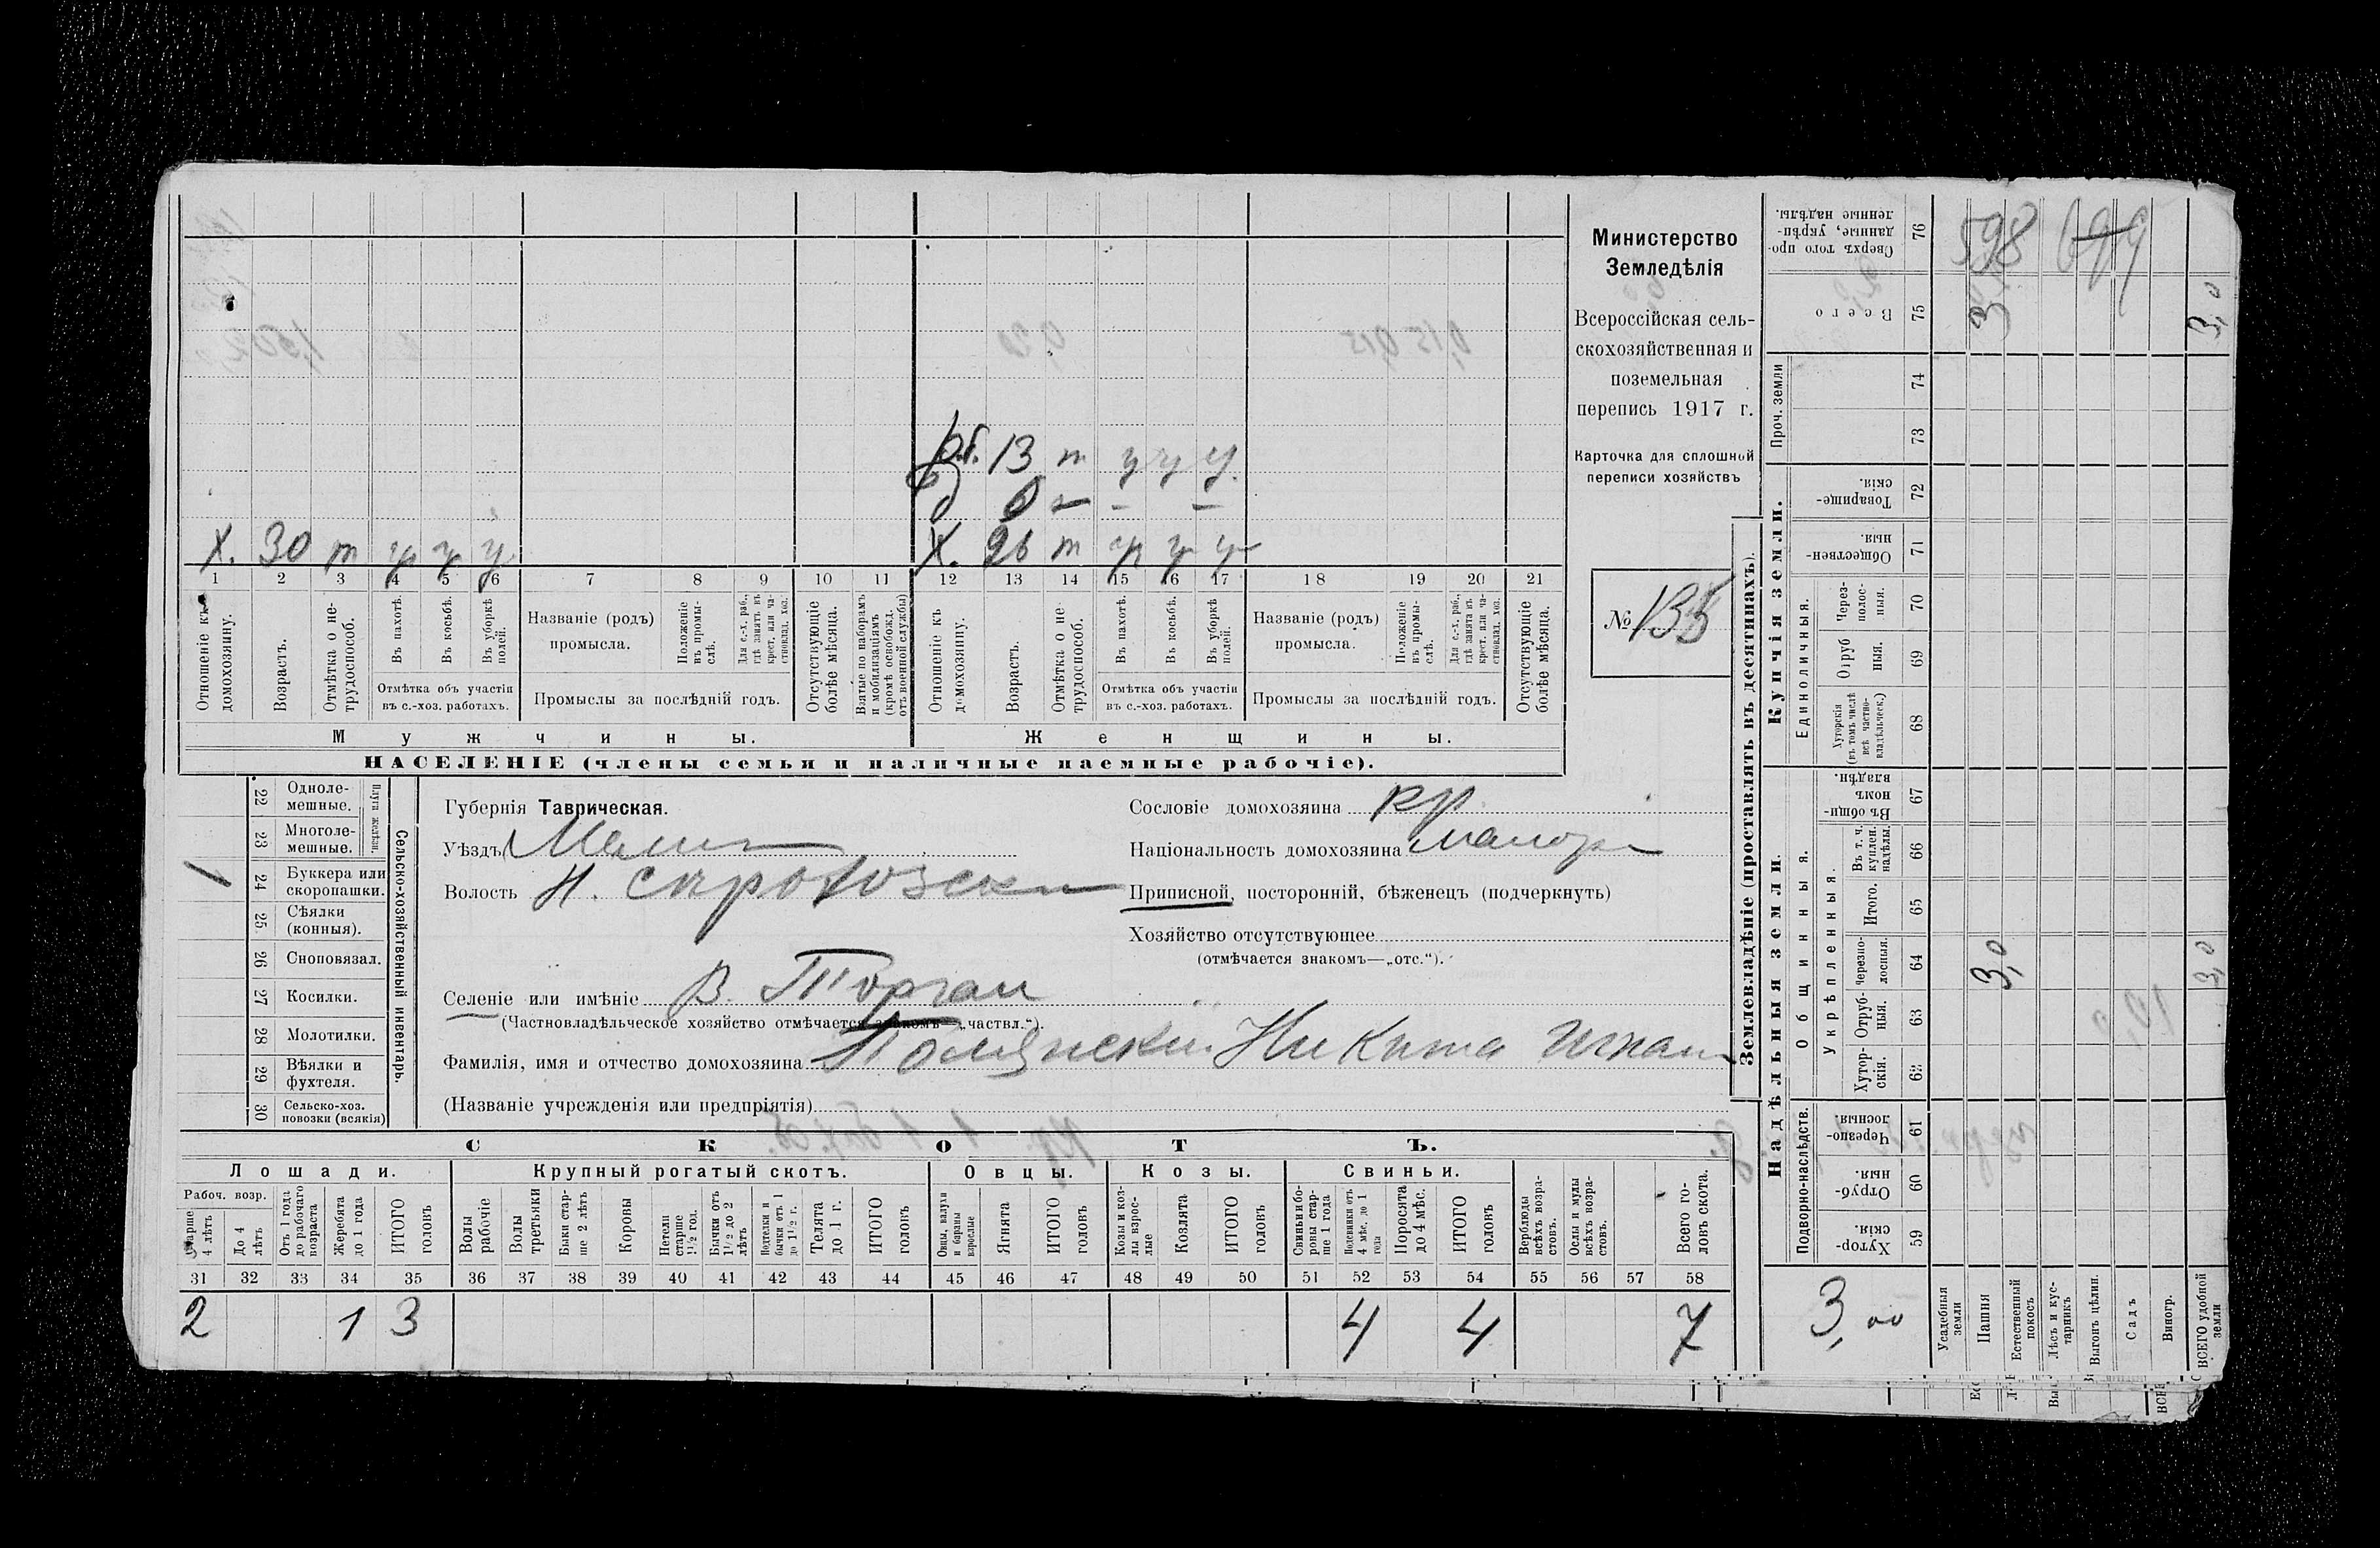 р.б. 13 т у у у
д 6 – – –
х. 30 т у у у
х. 26 т у у у
1 2 3 4 5 6 7 8 9 10 11 12 13 14 15 16 17 18 19 20 21
Отношеніе къ домохозяину.
Возрастъ.
Отмѣтка о не-трудоспособ.
Въ пахотѣ.
Въ косьбѣ.
Въ уборкѣ полей.
Отмѣтка объ участіи
въ с.-хоз. работахъ.
Названіе (родъ)
промысла.
Положеніе въ промы-слѣ.
Для с.-х. раб., гдѣ занятъ въ крест. или ча-стновлад. хоз.
Промыслы за послѣдній годъ.
Отсутствующіе болѣе мѣсяца.
Взятые по наборамъ и мобилизаціямъ (кромѣ освобожд. отъ военной службы)
Отношеніе къ домохозяину.
Возрастъ.
Отмѣтка о не-трудоспособ.
Въ пахотѣ.
Въ косьбѣ.
Въ уборкѣ полей.
Отмѣтка объ участіи
въ с.-хоз. работахъ.
Названіе (родъ)
промысла.
Положеніе въ промы-слѣ.
Для с.-х. раб., гдѣ занята въ крест. или ча-стновлад. хоз.
Промыслы за послѣдній годъ.
Отсутствующіе болѣе мѣсяца.
Мужчины.
Женщины.
НАСЕЛЕНІЕ (члены семьи и наличные наемные рабочіе).
Министерство
Земледѣлія
Всероссійская сель-
скохозяйственная и
поземельная
перепись 1917 г.
Карточка для сплошной
переписи хозяйствъ
№ 135
Сельско-хозяйственный инвентарь.
Плуги желѣзн.
22 Одноле-мешные.
23 Многоле-мешные.
24 Буккера или скоропашки. 1
25 Сѣялки (конныя).
26 Сноповязал.
27 Косилки.
28 Молотилки.
29 Вѣялки и фухтеля.
30 Сельско-хоз. повозки (всякія)
Губернія Таврическая.
Уѣздъ Мелит
Волость Н.
Селеніе или имѣніе В. Торгаи
(Частновладѣльческое хозяйство отмѣчается знакомъ—„частвл.“).
Фамилія, имя и отчество домохозяина Никита Игнат
(Названіе учрежденія или предпріятія)
Сословіе домохозяина кр
Національность домохозяина малор
Приписной, посторонній, бѣженецъ (подчеркнуть)
Хозяйство отсутствующее
(отмѣчается знакомъ—„отс.“).
СКОТЪ.
Лошади.
Крупный рогатый скотъ.
Овцы.
Козы.
Свиньи.
Рабоч. возр.
Старше 4 лѣтъ
До 4 лѣтъ
Отъ 1 года до рабочаго возраста
Жеребята до 1 года
ИТОГО головъ
Волы рабочіе
Волы третьяки
Быки стар-ше 2 лѣтъ
Коровы
Нетели старше 1½ год.
Бычки отъ 1½ до 2 лѣтъ
Подтелки и бычки отъ 1 до 1½ г.
Телята до 1 г.
ИТОГО головъ
Овцы, валухи и бараны взрослые
Ягнята
ИТОГО головъ
Козы и коз-лы взрос-лые
Козлята
ИТОГО головъ
Свиньи и бо-ровы стар-ше 1 года
Подсвинки отъ 4 мѣс. до 1 года
Поросята до 4 мѣс.
ИТОГО головъ
Верблюды всѣхъ возра-стовъ.
Ослы и мулы всѣхъ возра-стовъ.
Всего го-ловъ скота.
31 32 33 34 35 36 37 38 39 40 41 42 43 44 45 46 47 48 49 50 51 52 53 54 55 56 57 58
2 1 3 4 4 7
Землевладѣніе (проставлять въ десятинахъ).
Купчія земли.
Надѣльныя земли.
Сверхъ того про-данные, укрѣп-ленные надѣлы. 76
598
Всего 75
3,0
Проч. земли
74
73
Товарище-скія. 72
Обществен-ныя. 71
Единоличныя.
Через-полос-ныя. 70
Отруб ныя. 69
Хуторскія (въ томъ числѣ всѣ частно-владѣльческ.) 68
Общинныя.
Въ общи-номъ владѣн. 67
Укрѣпленныя.
Въ т. ч. куплен. надѣлы. 66
Итого. 65
Черезпо-лосныя. 64
3,0 3,0
Отруб-ныя. 63
Хутор-скія. 62
Подворно-наслѣдств.
Черезпо-лосныя. 61
Отруб-ныя. 60
Хутор-скія. 59
3,00
Усадебныя земли
Пашня
Естественный покосъ
Лѣсъ и кус-тарникъ
Выгонъ цѣлин.
Садъ
Виногр.
ВСЕГО удобной земли